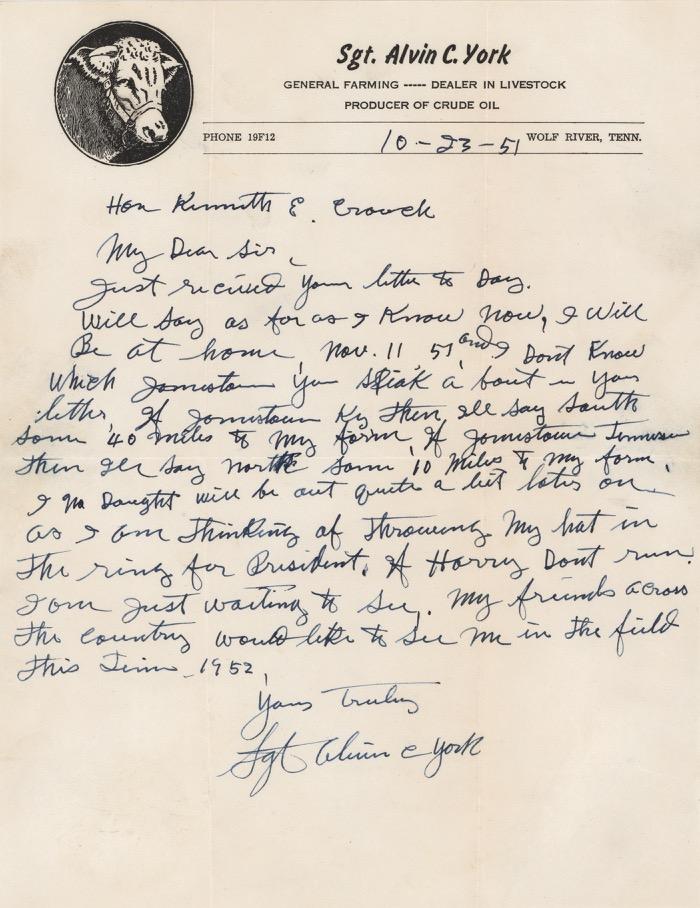 Sgt. Alvin C. York
GENERAL FARMING ----- DEALER IN LIVESTOCK
PRODUCER OF CRUDE OIL
PHONE 19F12 10-23-51 WOLF RIVER, TENN.
Hon Kenneth E. Crouch
My Dear Sir,
Just recieved your letter to Day.
Will Say as far as I Know Now, I Will
Be at home, Nov. 11 51 and I Dont Know
Which Jamestown you speak a bout in your
letter. If Jamestown Ky then, Ill Say South
some 40 miles to my farm, If Jamestown Tennessee
then Ill Say north some 10 Miles to my farm,
I no Daught will be out quite a bit later on
as I am thinking of throwing My hat in
the ring for President, if Harry Dont run.
I am Just waiting to See. My friends across
the country would like to See Me in the field
this Time 1952,
Yours Truly
Sgt Alvin C York